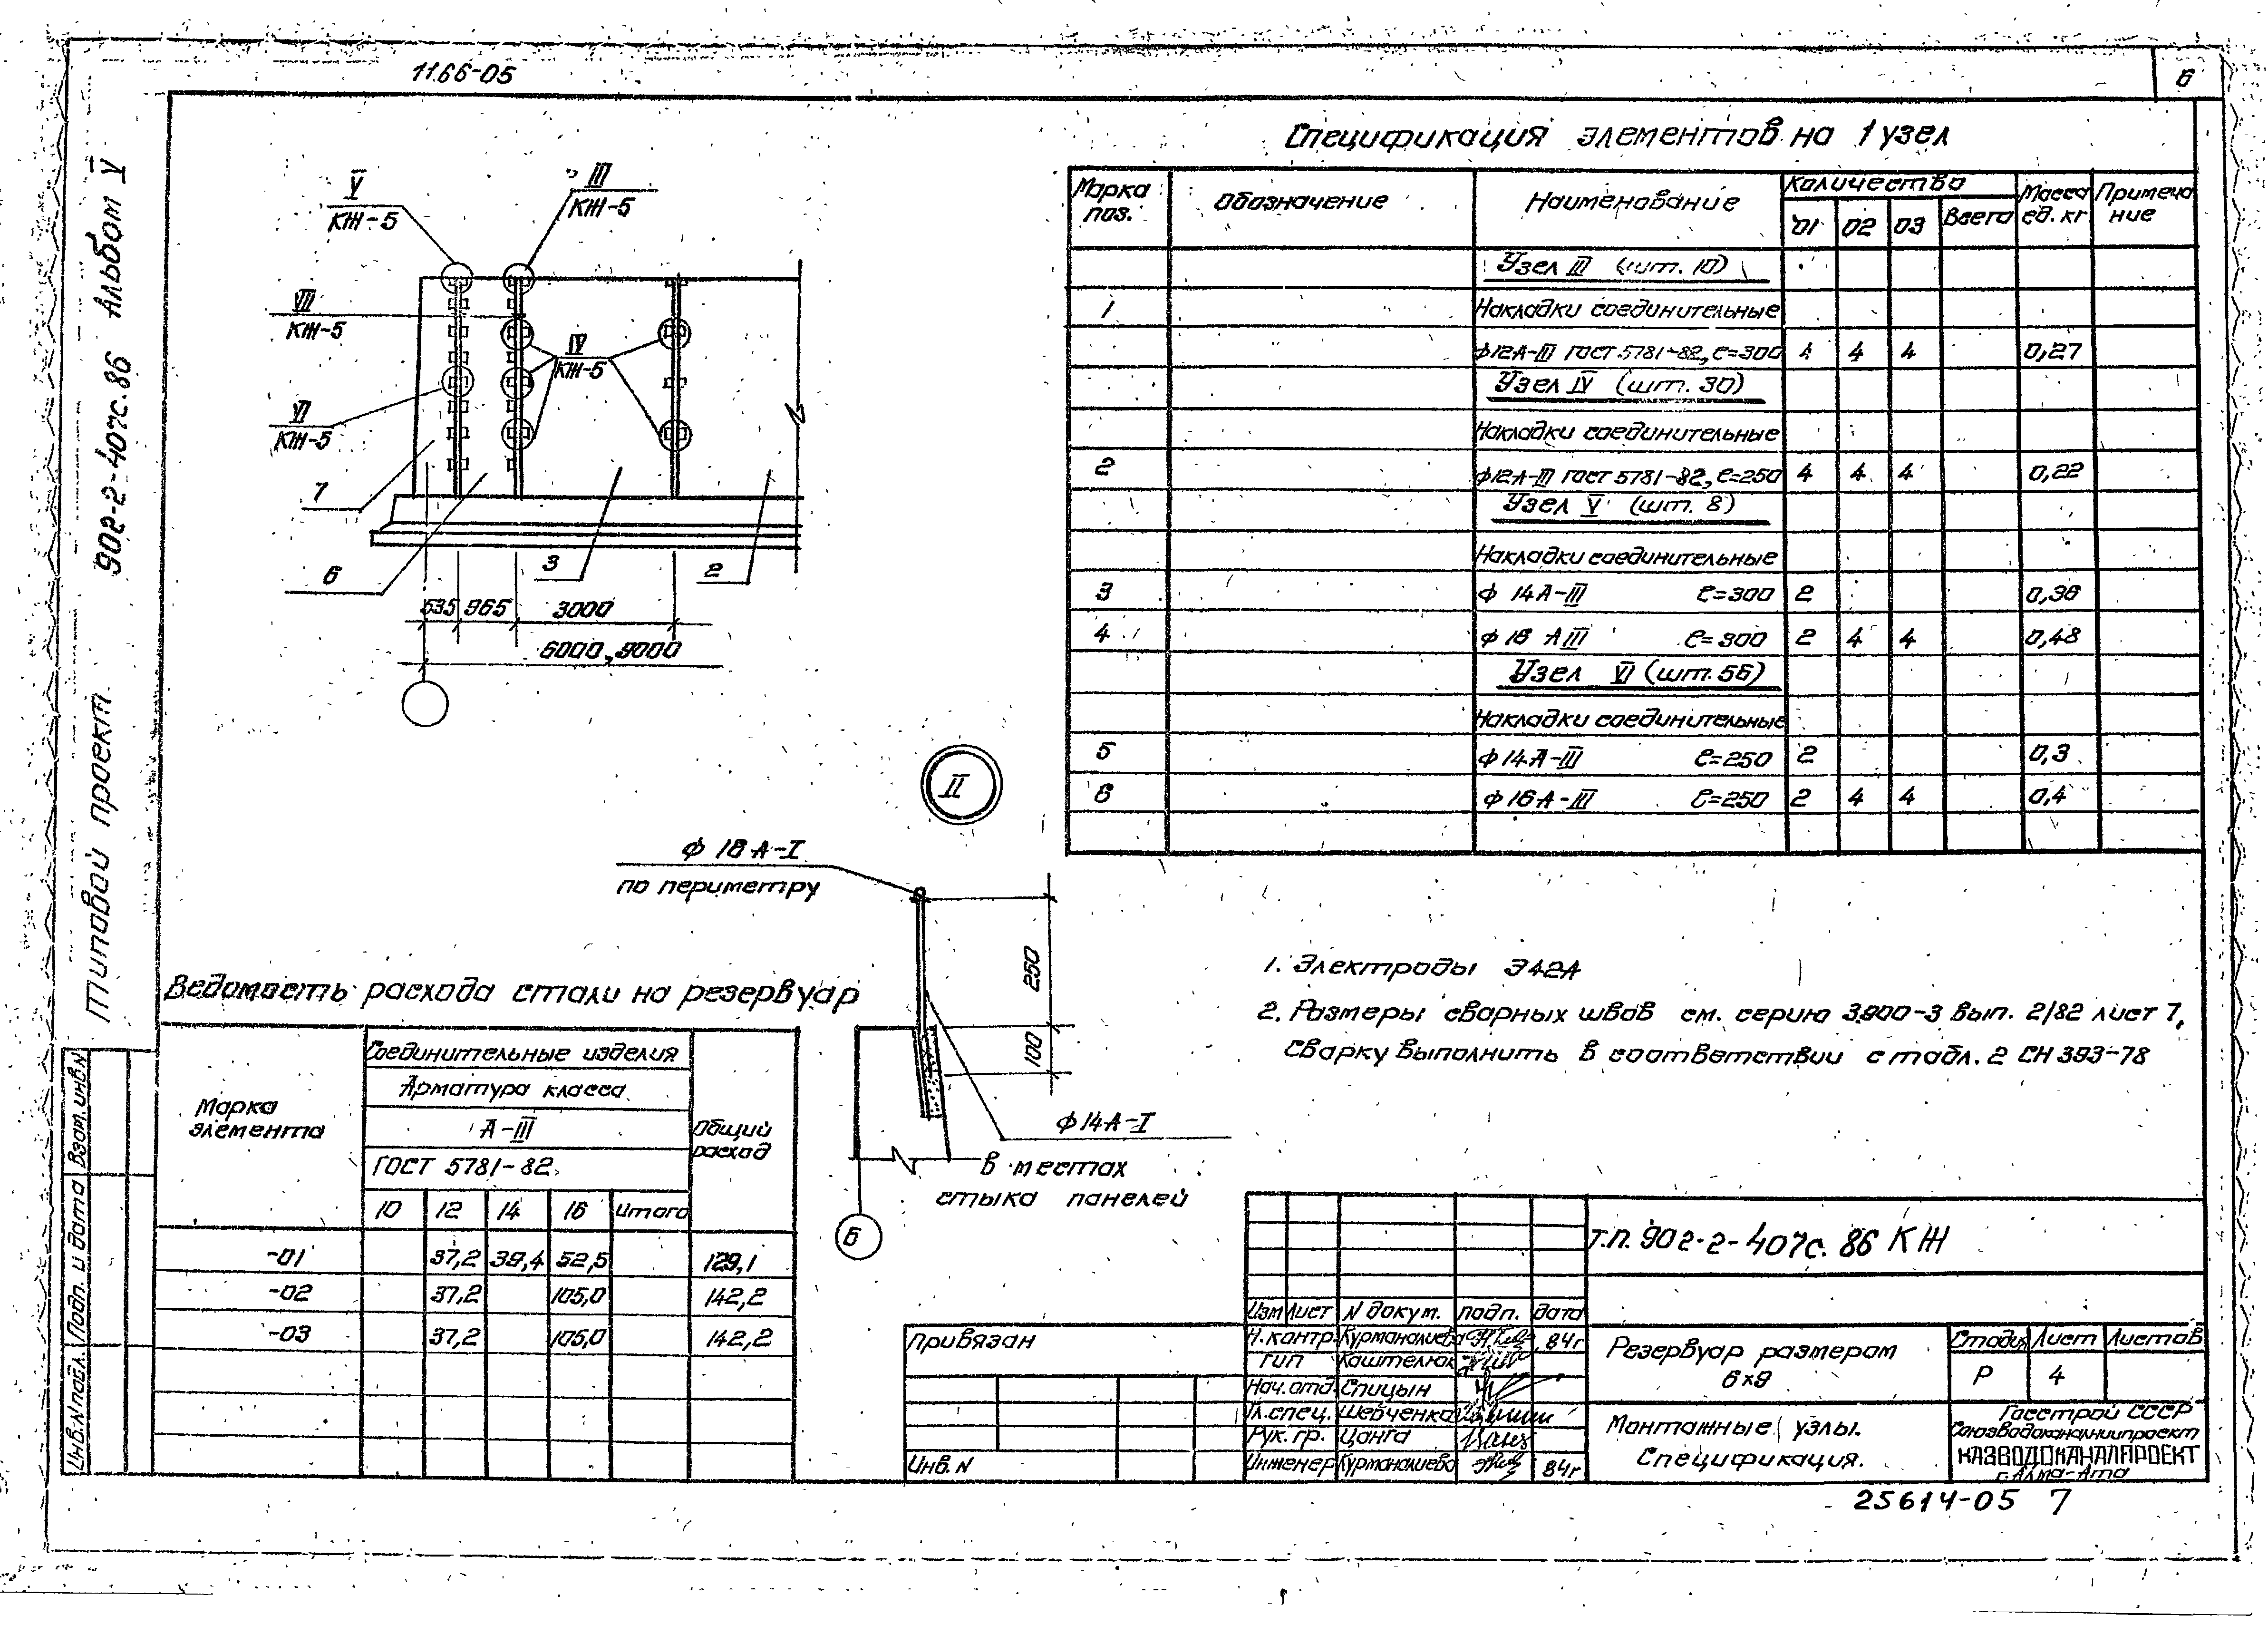 1166-05
6
Типовой проект 902-2-407с.86 Альбом V
V
КЖ-5
III
КЖ-5
VII
КЖ-5
IV
КЖ-5
VI
КЖ-5
7
6
3
2
535 965 3000
6000, 9000
Спецификация элементов на 1 узел
Марка поз.
Обозначение
Наименование
Количество
01 02 03 Всего
Масса ед. кг
Примечание
Узел III (шт. 10)
1 Накладки соединительные
ф12А-III ГОСТ 5781-82, ℓ=300 4 4 4 0,27
Узел IV (шт. 30)
Накладки соединительные
2 ф12А-III ГОСТ 5781-82, ℓ=250 4 4 4 0,22
Узел V (шт. 8)
Накладки соединительные
3 ф 14А-III ℓ=300 2 0,36
4 ф 16 АIII ℓ=300 2 4 4 0,48
Узел VI (шт. 56)
Накладки соединительные
5 ф 14А-III ℓ=250 2 0,3
6 ф 16А-III ℓ=250 2 4 4 0,4
II
ф 18 А-I
по периметру
250
100
ф 14А-I
в местах
стыка панелей
Б
1. Электроды Э42А
2. Размеры сварных швов см. серию 3.900-3 вып. 2/82 лист 7,
сварку выполнить в соответствии с табл. 2 СН 393-78
Ведомость расхода стали на резервуар
Марка элемента
Соединительные изделия
Арматура класса
А-III
ГОСТ 5781-82
10 12 14 16 Итого
Общий расход
-01 37,2 39,4 52,5 129,1
-02 37,2 105,0 142,2
-03 37,2 105,0 142,2
Взам. инв.N
Подп. и дата
Инв.N подл.
Привязан
Инв. N
Т.П. 902-2-407с. 86 КЖ
Изм Лист N докум. подп. дата
Н.контр. Курманалиева 84г
ГИП Каштелюк
Нач.отд. Спицын
Гл.спец. Шевченко
Рук. гр. Цонга
Инженер Курманалиева 84г
Резервуар размером
6х9
Стадия Лист Листов
Р 4
Монтажные узлы.
Спецификация.
Госстрой СССР
Союзводоканалниипроект
КАЗВОДОКАНАЛПРОЕКТ
г. Алма-Ата
25614-05 7